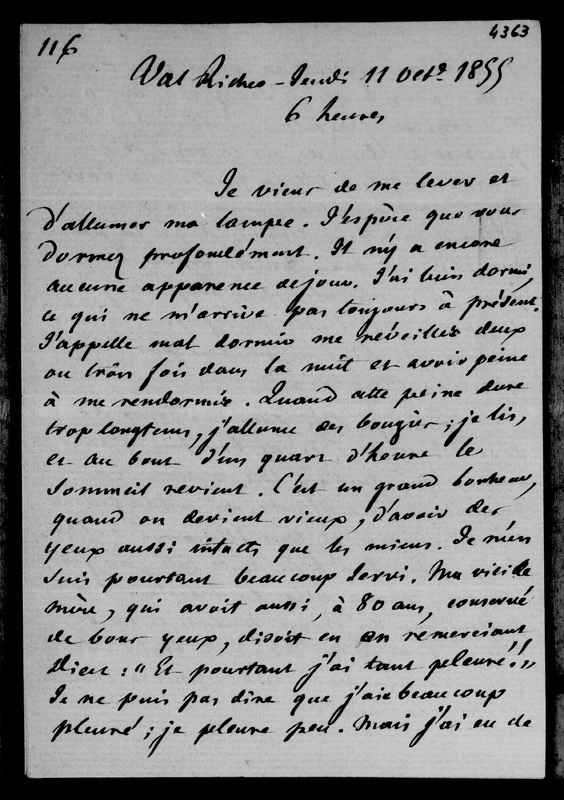 116
4363
Val Richer - Jeudi 11 Octe 1855
6 heures
Je viens de me lever et
d'allumer ma lampe. J'espère que vous
dormez profondément. Il n'y a encore
aucune apparence de jour. J'ai bien dormi,
ce qui ne m'arrive pas toujours à présent.
J'appelle mal dormir me réveiller deux
ou trois fois dans la nuit et avoir peine
à me rendormir. Quand cette peine dure
trop longtems, j'allume des bougies ; je lis,
et au bout d'un quart d'heure le
sommeil revient. C'est un grand bonheur,
quand on devient vieux, d'avoir des
yeux aussi intacts que les miens. Je m'en
suis pourtant beaucoup servi. Ma vieille
mère, qui avoit aussi, à 80 ans, conservé
de bons yeux, disoit en en remerciant
Dieu : "Et pourtant j'ai tant pleuré !"
Je ne puis pas dire que j'aie beaucoup
pleuré ; je pleure peu. Mais j'ai eu de